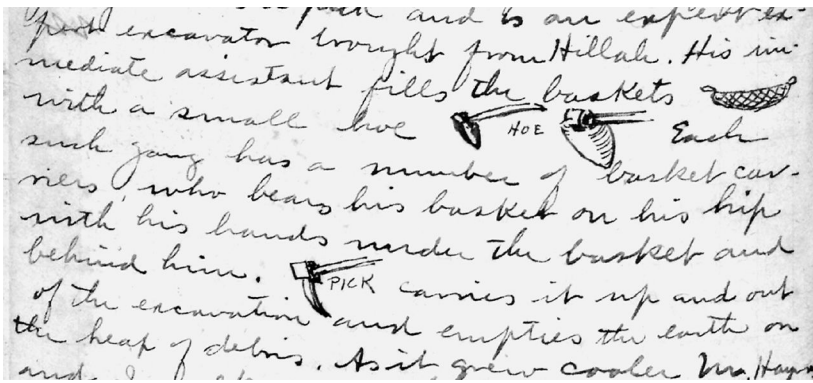 and is an expert ex-
pert excavator brought from Hillah. His im-
mediate assistant fills the baskets
with a small hoe HOE Each
such gang has a number of basket car-
riers, who bears his basket on his hip
with his hands under the basket and
behind him. PICK carries it up and out
of the excavation and empties the earth on
the heap of debris. As it grew cooler Mr. Hayn
and